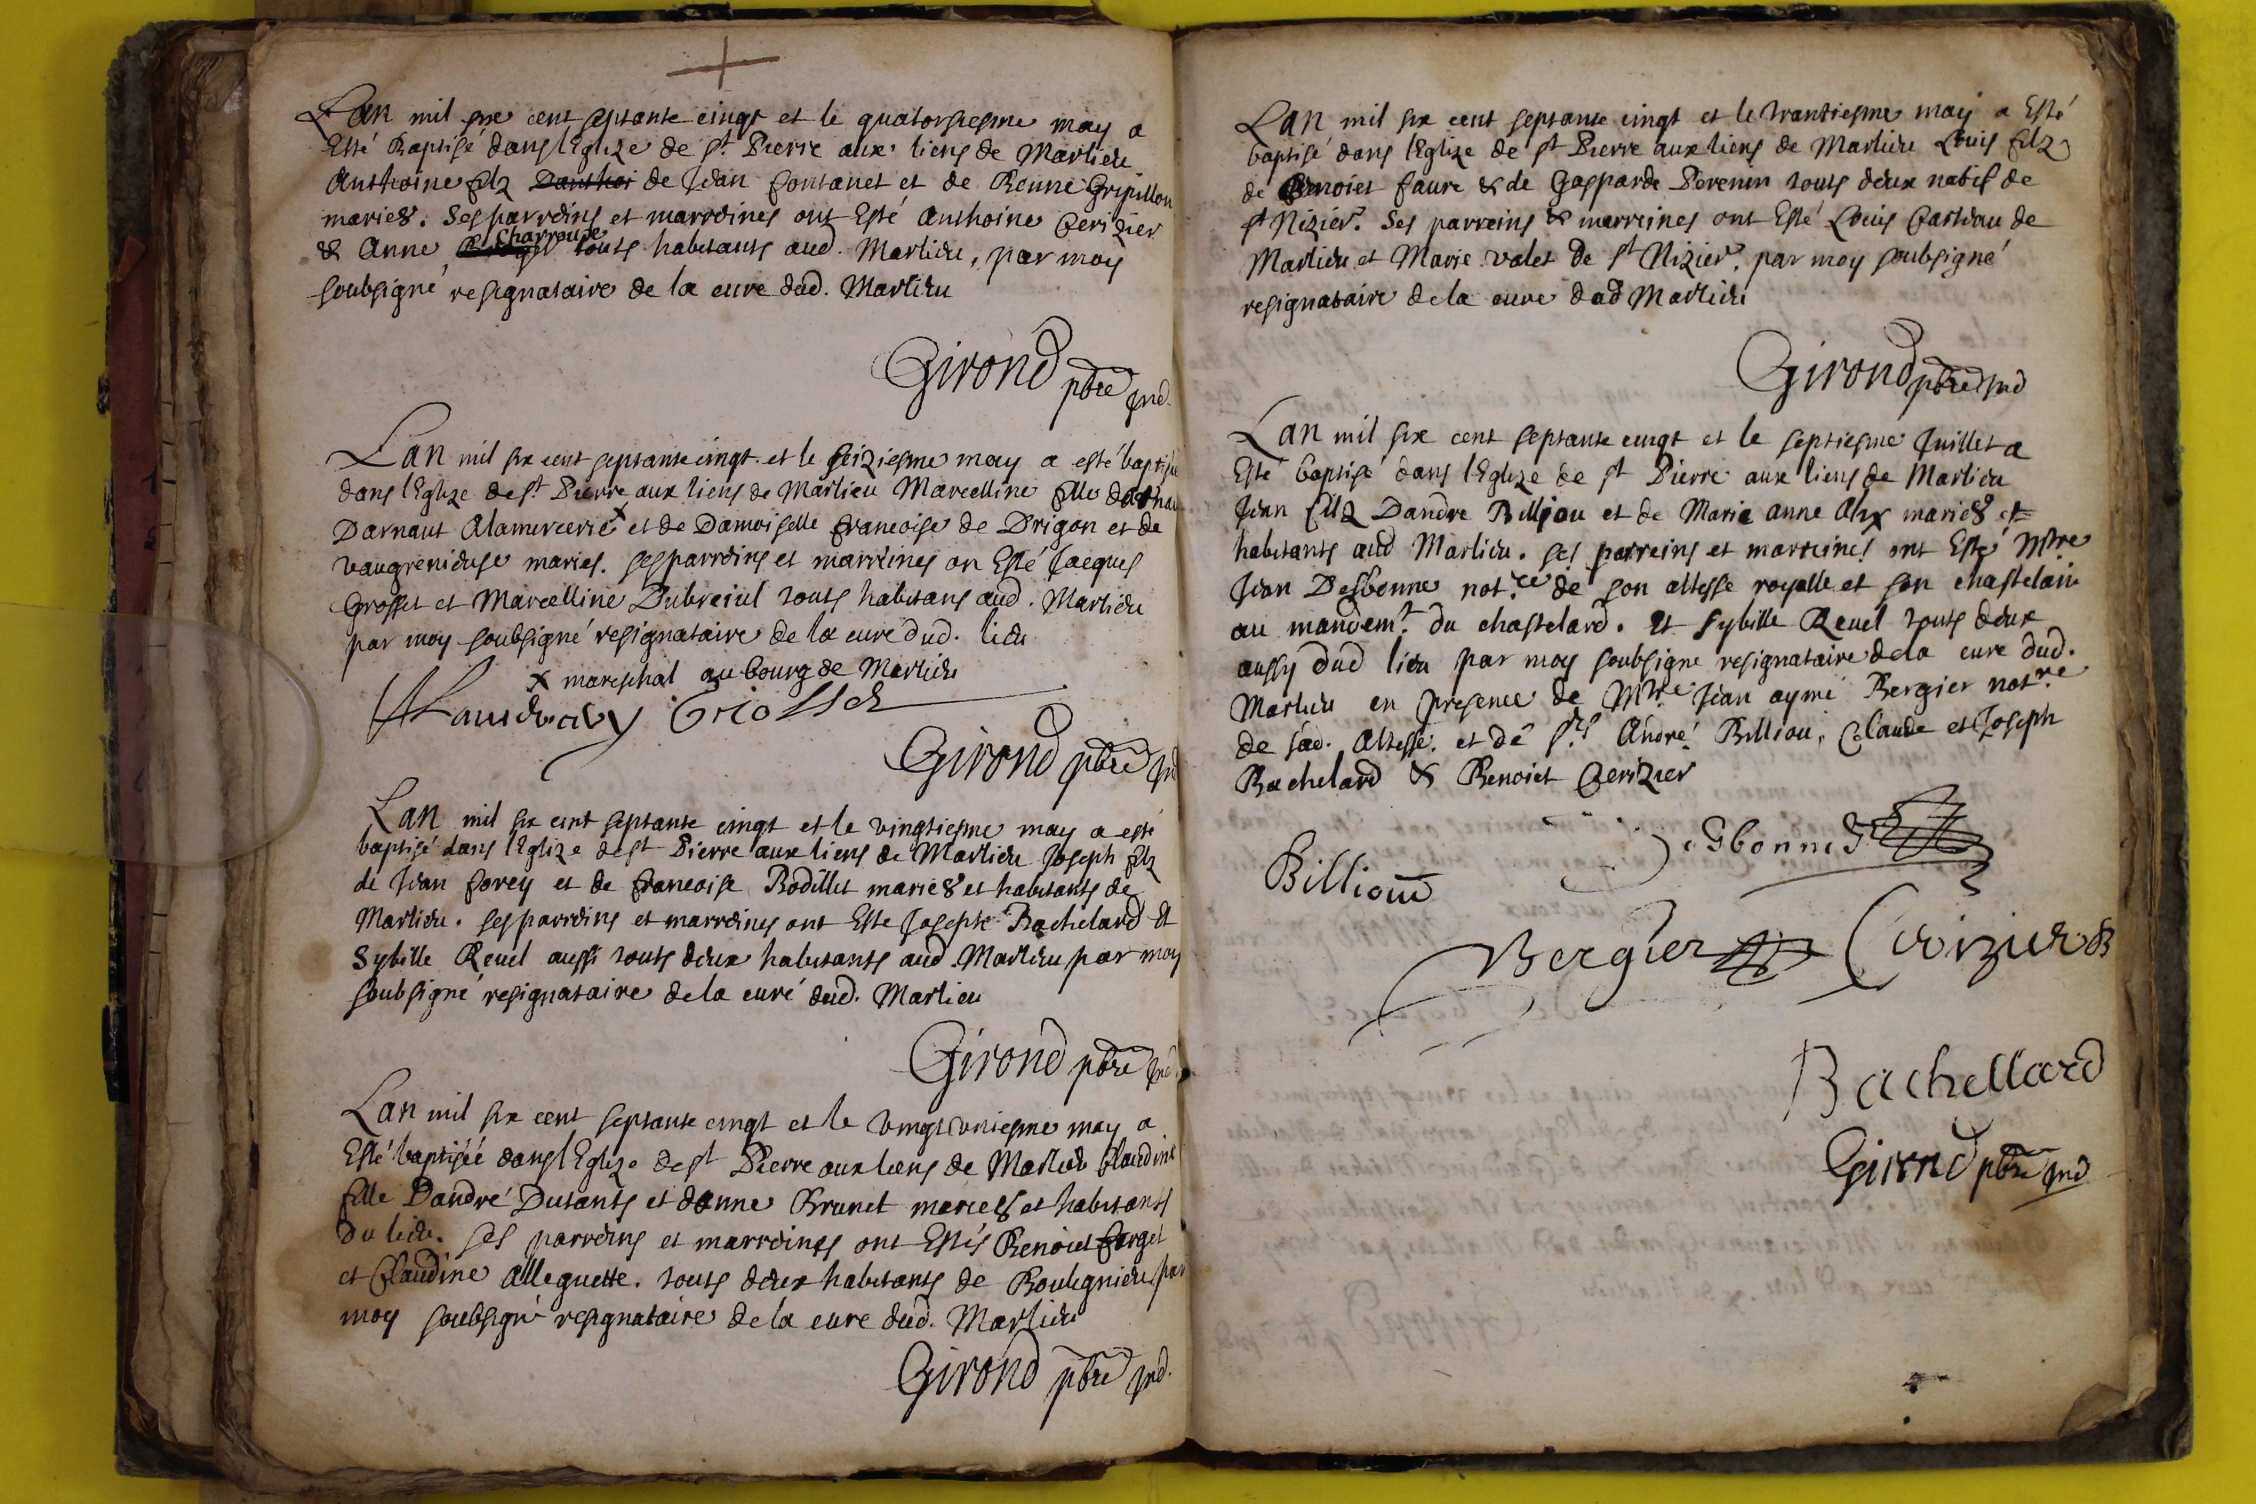 Lan mil six cent septante cingt et le quatorsiesme may a
Esté Baptisé dans lEglize de st Pierre aux liens de Marlieu
Anthoine filz de Jean fontanet et de Benne Gripillon
mariés. Ses parreins et marreines ont Esté Anthoine Cerizier
& Anne Charrouse touts habitants aud. Marlieu, par moy
soubsigné resignataire de la cure dud. Marlieu
Girond pbre Ind.
Lan mil six cent septante cingt et le seiziesme may a esté baptisée
dans lEglize de st Pierre aux liens de Marlieu Marcelline fille
Darnaut Alamercerie x et de Damoiselle francoise de Drigon et de
vaugrenieuse mariés. ses parreins et marreines on Esté Jacques
Grosset et Marcelline Dubreiul touts habitans aud. Marlieu
par moy soubsigné resignataire de la cure dud. lieu
x mareschal au bourg de Marlieu
Girond pbre Ind
Lan mil six cent septante cingt et le vingtiesme may a esté
baptisé dans lEglize de st Pierre aux liens de Marlieu Joseph filz
de Jean forey et de francoise Bodillet mariés et habitants de
Marlieu. ses parreins et marreines ont Esté Joseph Bachelard Et
Sybille Revel aussi touts deux habitants aud Marlieu par moy
soubsigné resignataire de la curé dud. Marlieu
Girond pbre Ind
Lan mil six cent septante cingt et le vingt uniesme may a
Esté baptiséé dans lEglize de st Pierre aux liens de Marlieu Claudine
fille Dandré Dutants et danne Brunet mariés et habitants
du lieu. ses parreins et marreines ont Estés Benoiet farget
et Claudine Alleguette. touts deux habitants de Boulignieu par
moy soubsigné resignataire de la cure dud. Marlieu
Girond pbre Ind.
Lan mil six cent septante cingt et le trantiesme may a Esté
baptisé dans lEglize de st Pierre aux liens de Marlieu Louis filz
de Benoiet faure & de Gasparde Perenin touts deux natifs de
st Nizier. Ses parreins & marreines ont Esté Louis Casteau de
Marlieu et Marie valet de st Nizier. par moy soubsigné
resignataire de la cure dud Marlieu
Girond pbre Ind
Lan mil six cent septante cingt et le septiesme Juillet a
Esté baptisé dans lEglize de st Pierre aux liens de Marlieu
Jean filz Dandre Billiou et de Marie anne Alix mariés et
habitants aud Marlieu. ses parreins et marreines ont Esté Mtre
Jean Desbonne notre de son altesse royalle et son chastelain
au mandemt du chastelard. Et Sybille Revel touts deux
aussy dud lieu par moy soubsigne resignataire de la cure dud.
Marlieu en presence de Mtre Jean aymé Bergier notre
de sad. Altesse. et de srs André Billiou, Claude et Joseph
Bachelard & Benoiet Cerizier
Desbonnes
Billiou
Bergier Cerizier
Bachellard
Girond pbre Ind